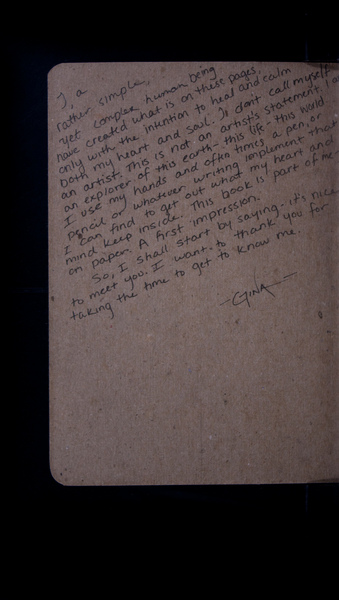 I, a
rather simple,
yet complex human being
have created what is on these pages.
only with the intention to heal and calm
both my heart and soul. I don't call myself
an artist. This is not an artist's statement. I am
an explorer of this earth - this life - this world.
I use my hands and often times a pen, or
pencil or whatever writing implement that
I can find to get out what my heart and
mind keep inside. This book is part of me
on paper. A first impression.
So, I shall start by saying.. it's nice
to meet you. I want to thank you for
taking the time to get to know me.
- GINA -